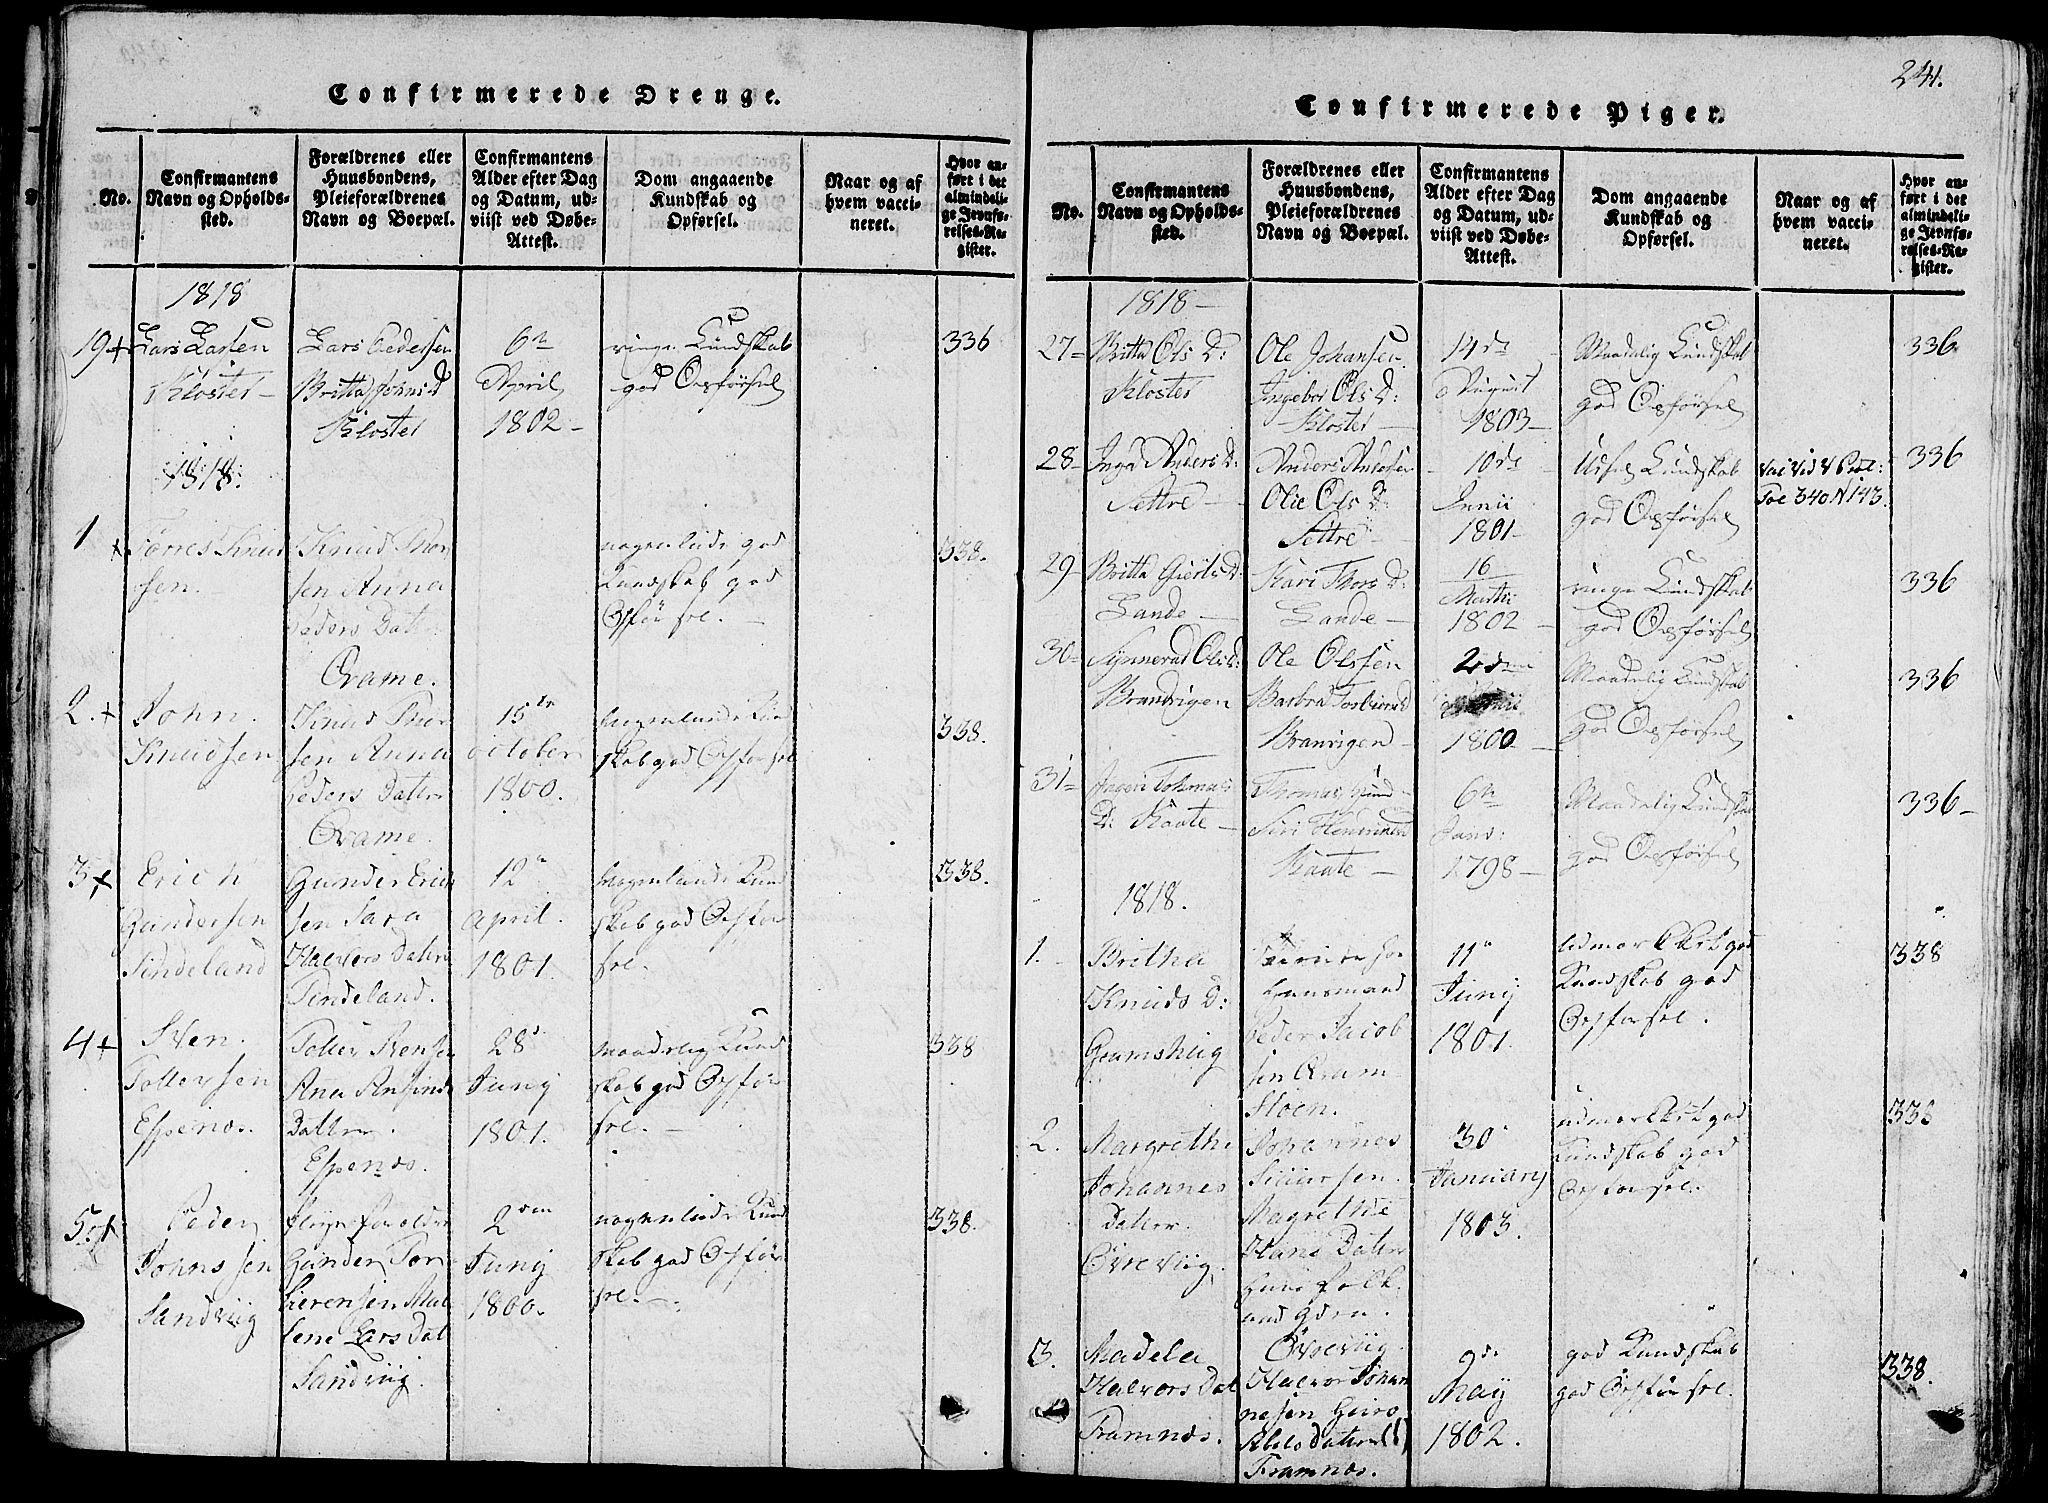 241.
Confirmerede Drenge.
No.
Confirmantens
Navn og Opholds-
sted.
Forældrenes eller
Huusbondens,
Pleieforældrenes
Navn og Boepæl.
Confirmantens
Alder efter Dag
og Datum, ud-
viist ved Døbe-
Attest.
Dom angaaende
Kundskab og
Opførsel.
Naar og af
hvem vacci-
neret.
Hvor an-
ført i det
almindeli-
ge Jevnfø-
relses-Re-
gister.
1818
19 +
Lars Larsen
Kloster
Lars Pedersen
Britta Johns D
Kloster
6te
April
1802
ringe Kundskab
god Opførsel
336
1818.
1 +
Torres Knud
sen.
Knud Thor
sen Anna
Peders Datter
Qvame.
nogenlunde god
Kundskab god
Opførsel.
338.
2. +
John
Knudsen
Knud Thor
sen Anna
Peders Datter
Qvame.
15de
October
1800.
nogenlunde Kund
skab god Opførsel
338.
3 +
Erich
Gundersen
Tindeland
Gunder Erich
sen Sara
Halvors Datter
Tindeland.
12te
April.
1801.
nogenlunde Kund
skab god Opfør
sel.
338.
4 +
Sven.
Tollevsen
Espenæs.
Tollev Svensen
Ana
Datter.
Espenæs.
28de
Juny
1801.
maadelig Kund
skab god Opfør
sel.
338
5. +
Peder
Johnssen
Sandviig
Gunder Tor
Lars Dat
Sandviig.
2den
Juny
1800.
nogenlunde Kund
skab god Opfør
sel.
338.
Confirmerede Piger.
No.
Confirmantens
Navn og Opholds-
sted.
Forældrenes eller
Huusbondens,
Pleieforældrenes
Navn og Boepæl.
Confirmantens
Alder efter Dag
og Datum, ud-
viist ved Døbe-
Attest.
Dom angaaende
Kundskab og
Opførsel.
Naar og af
hvem vacci-
neret.
Hvor an-
ført i det
almindeli-
ge Jevnfø-
relses-Re-
gister.
1818
27
Britta Ols D:
Kloster
Ole Johansen
Ingebor Ols D:
Kloster
14de
August
1803
Maadelig Kundskab
god Opførsel
336
28
Inga Anders D:
Settre
Anders
Olie Ols D:
Settre
10de
Junii
1801
Kundskab
god Opførsel
340 N 143.
336
29
Britta D:
Lande
Kari Thors D:
Lande
16
Martii
1802
ringe Kundskab
god Opførsel
336
30
Synnerud Ols D:
Brandvigen
Ole Olssen
Barbra
Branvigen
2den
1800
Maadelig Kundskab
god Opførsel
336
31
D: Kaate
Thomas
Siri
Kaate
6te
Janv:
1798
Maadelig Kundskab
god Opførsel
336
1818.
1.
Brithe
Knuds D:
Huusmand
Peder Jacob
sen
11te
Juny
1801.
udmærkket god
Kundskab god
Opførsel.
338
2.
Margrethe
Johannes
Datter
Øvreviig
Johannes
Siversen.
Magrethe
Hans Datter
Huusfolk
Øvreviig.
30
January
1803.
udmærkket god
Kundskab god
Opførsel.
338
3.
Madela
Halvors Dat
Framnæs.
Halvor Johan
nesen
Framnæs.
9de
May
1802.
god Kundskab
god Opførsel.
338.